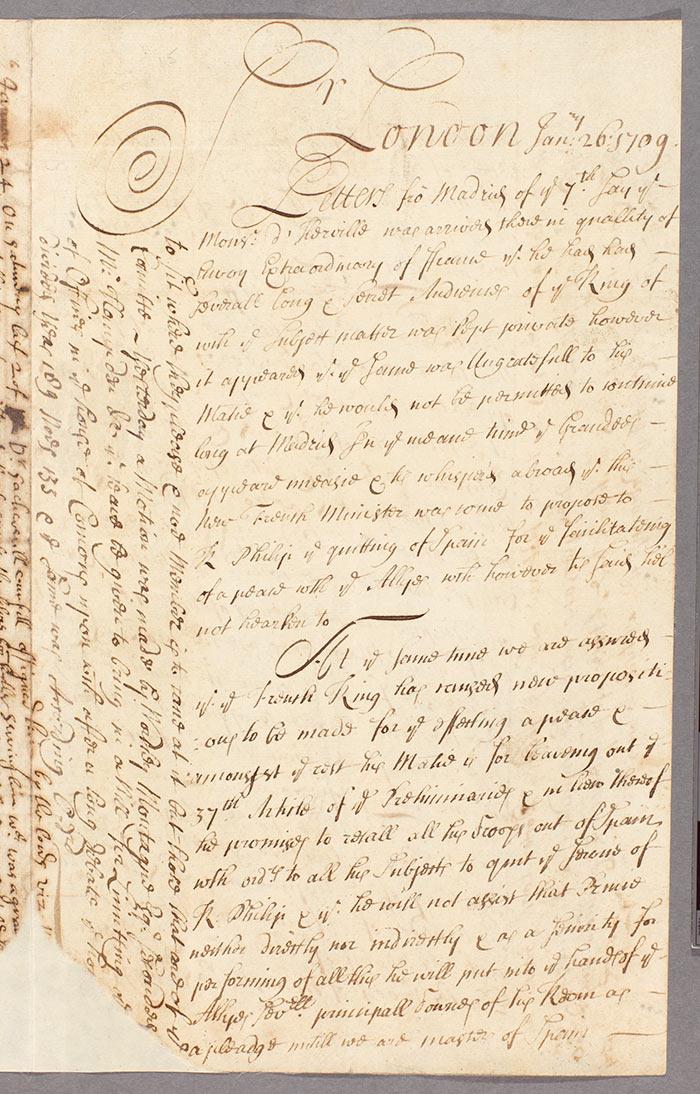 Sr
London Janry 26: 1709.
Letters frō Madrid of ye 7th Say yt
Monsr. d'Iberville was arrived there in quallity of
Envoy Extraordinary of ffrance yt he had had
severall long & secret Audiences of ye King of
wch ye subject matter was kept private however
it appeared yt ye same was Ungratefull to his
Matie & yt he would not be permitted to continue
long at Madrid In ye meane time ye Grandees
appeare uneasie & tis whispered abroad yt this
new French Minister was come to propose to
K Philip ye quitting of Spain for ye facilitateing
of a peace wth ye Allyes wch however tis said hee'l
not hearken to
At ye same time we are assured
yt ye French King has caused new propositi=
=ons to be made for ye effecting a peace &
amongst ye rest his Matie is for leaveing out ye
37th Article of ye Preliminaries & in liew thereof
he promises to recall all his Troops out of Spain
wth ordrs to all his Subjects to quit ye Service of
K. Philip & yt he will not assist that Prince
neither directly nor indirectly & as a security for
performing of all this he will put into ye hands of ye
Allyes sevrll principall Townes of his Realm as
a pleadge untill we are master of Spain
to sit where they please & noe Member is to come at it but those that are of ye
Comittee Yesterday a Motion was made by Wortley Montague Esqr seconded
Mr Hampden Leave to be given to bring in a Bill for Limiting
of Officers in ye house of Comons upon wch after a long debate ye
divided Yeas 189 Noes 135 & ye same was Ordering
January 24 On Saturday last